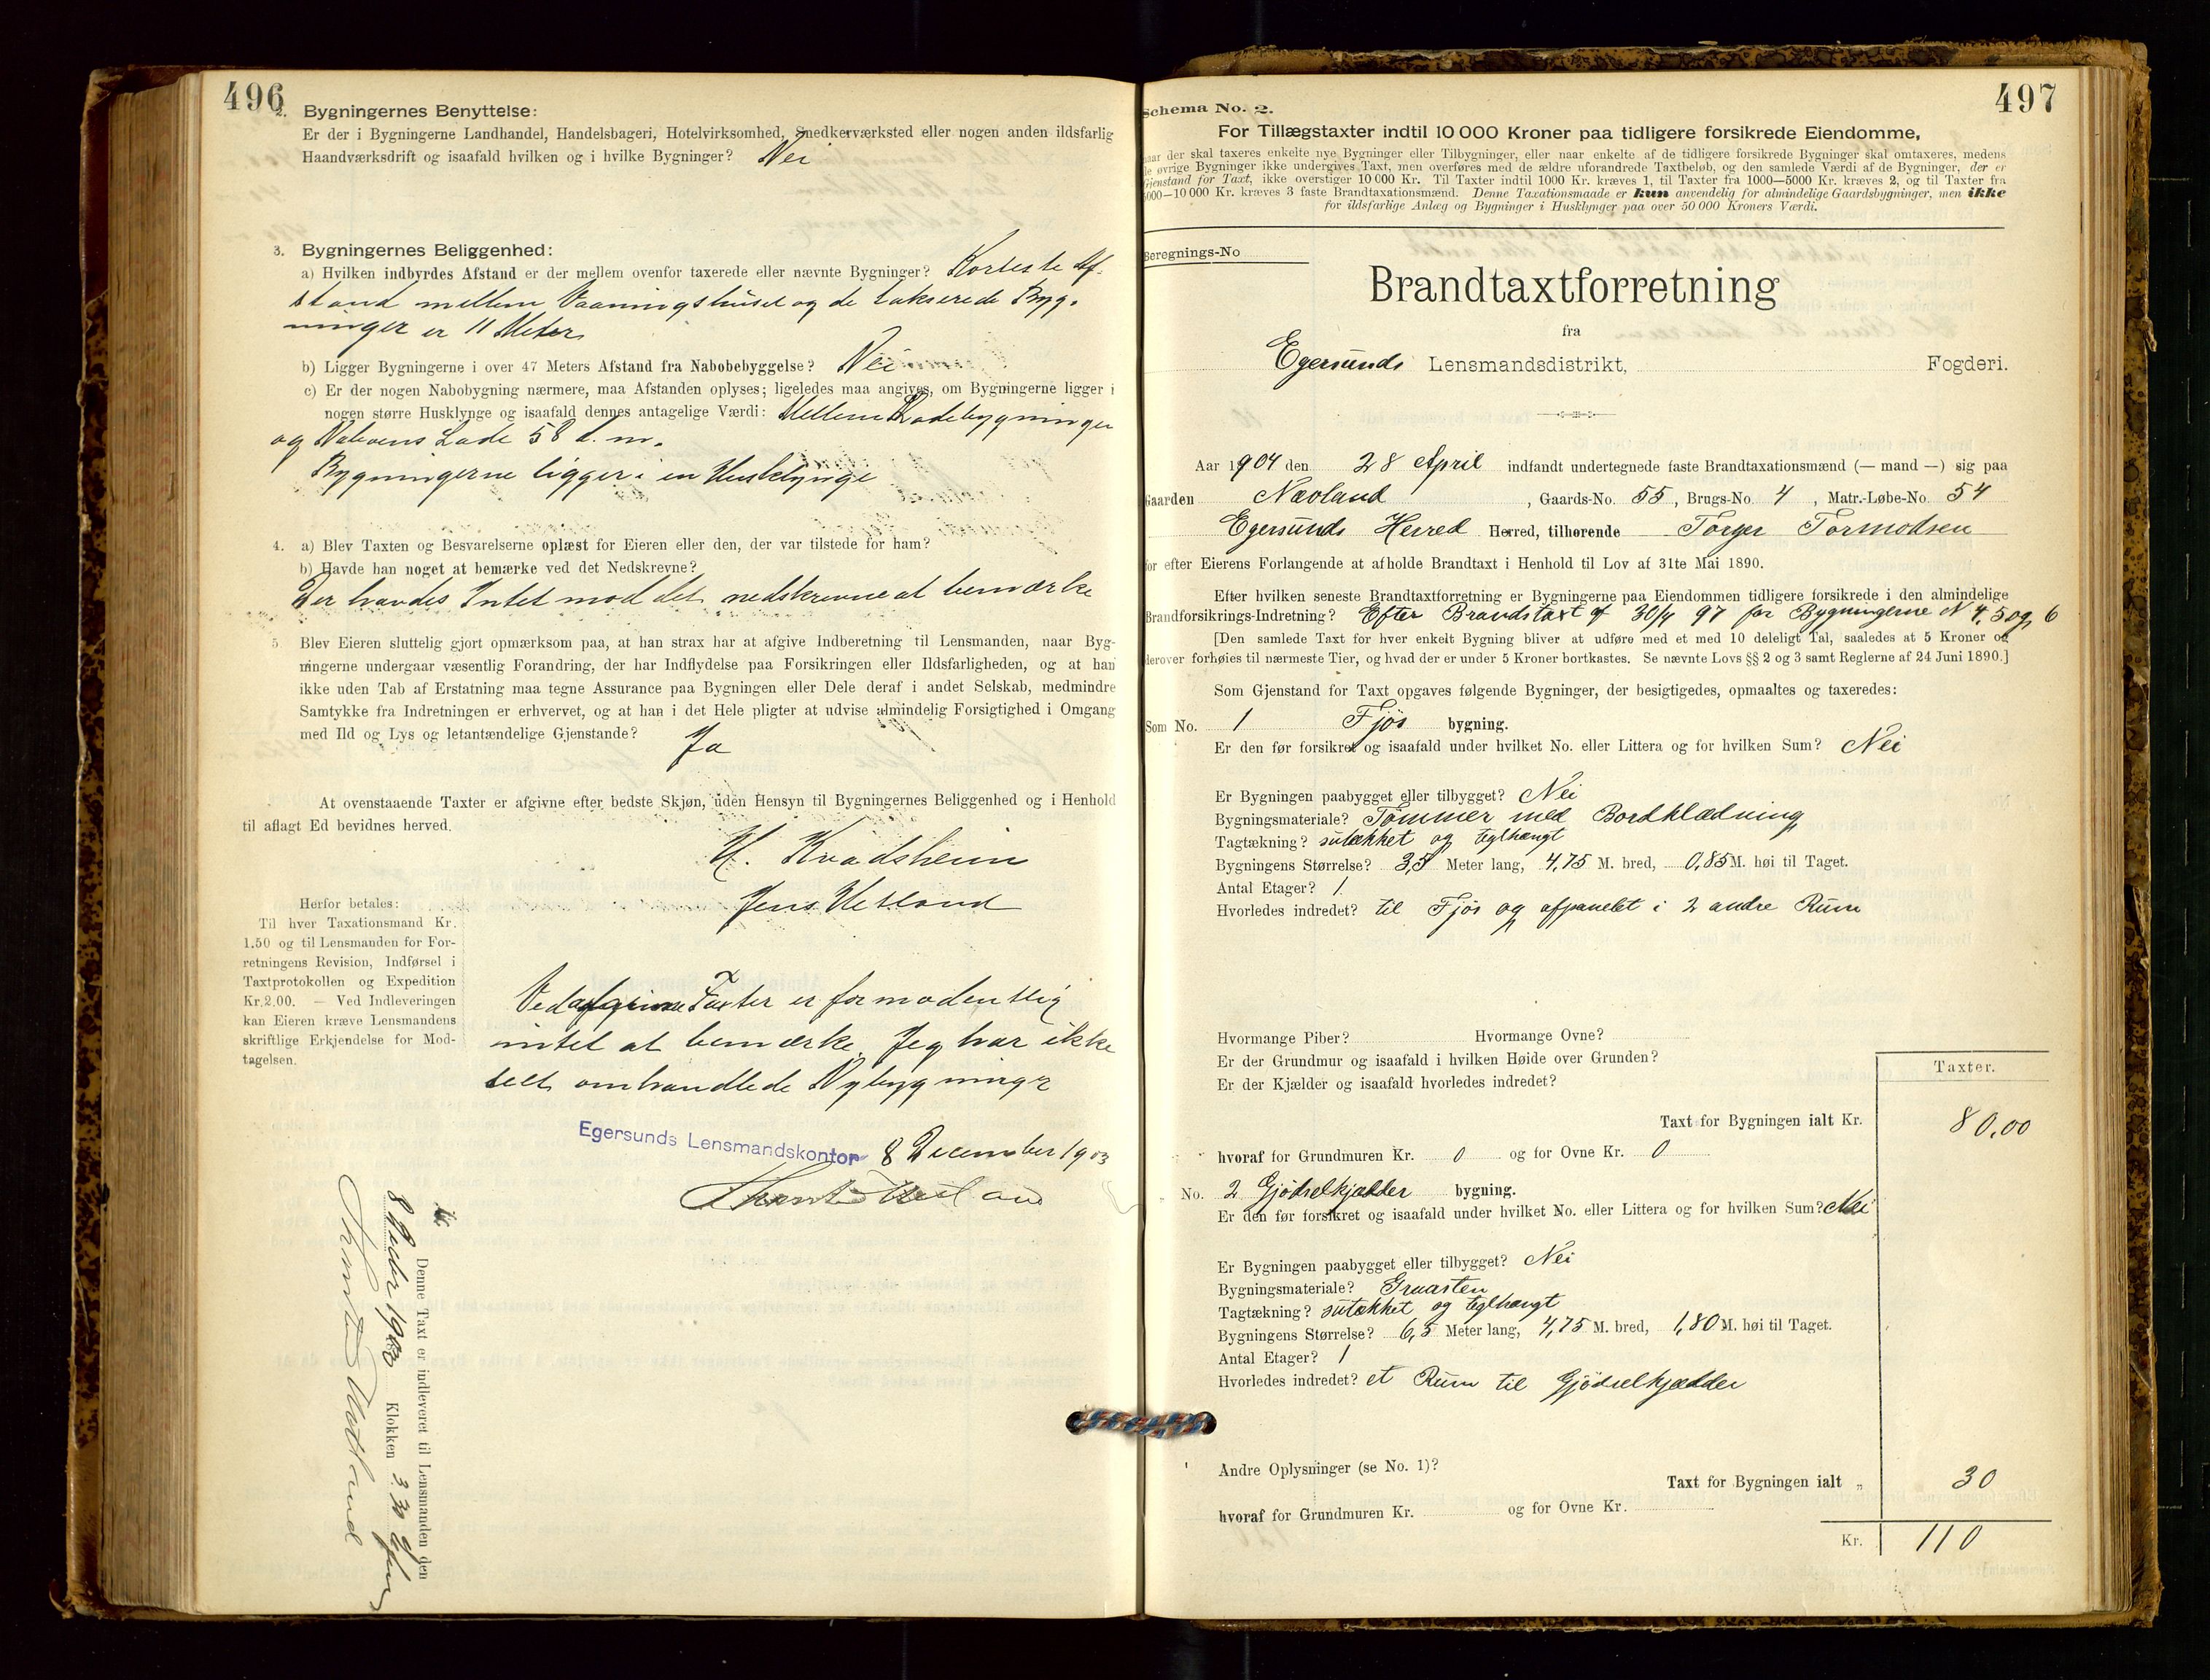 496
2. Bygningernes Benyttelse:
Er der i Bygningerne Landhandel, Handelsbageri, Hotelvirksomhed, Snedkerværksted eller nogen anden ildsfarlig
Haandværksdrift og isaafald hvilken og i hvilke Bygninger? Nei
3. Bygningernes Beliggenhed:
a) Hvilken indbyrdes Afstand er der mellem ovenfor taxerede eller nævnte Bygninger? Korteste Af-
stand mellem Vaaningshuset og de takserede Byg-
ninger er 11 Meter
b) Ligger Bygningerne i over 47 Meters Afstand fra Nabobebyggelse? Nei
c) Er der nogen Nabobygning nærmere, maa Afstanden oplyses; ligeledes maa angives, om Bygningerne ligger i
nogen større Husklynge og isaafald dennes antagelige Værdi: Mellem Ladebygningen
og Naboens Lade 58 d. m.
Bygningerne ligger i en Husklynge
4. a) Blev Taxten og Besvarelserne oplæst for Eieren eller den, der var tilstede for ham?
b) Havde han noget at bemærke ved det Nedskrevne?
Der havdes Intet mod det nedskrevne at bemærke
5. Blev Eieren sluttelig gjort opmærksom paa, at han strax har at afgive Indberetning til Lensmanden, naar Byg-
ningerne undergaar væsentlig Forandring, der har Indflydelse paa Forsikringen eller Ildsfarligheden, og at han
ikke uden Tab af Erstatning maa tegne Assurance paa Bygningen eller Dele deraf i andet Selskab, medmindre
Samtykke fra Indretningen er erhvervet, og at han i det Hele pligter at udvise almindelig Forsigtighed i Omgang
med Ild og Lys og letantændelige Gjenstande? Ja
At ovenstaaende Taxter er afgivne efter bedste Skjøn, uden Hensyn til Bygningernes Beliggenhed og i Henhold
til aflagt Ed bevidnes herved.
H. Kvadsheim
Jens Hetland
Herfor betales:
Til hver Taxationsmand Kr.
1.50 og til Lensmanden for For-
retningens Revision, Indførsel i
Taxtprotokollen og Expedition
Kr.2.00. — Ved Indleveringen
kan Eieren kræve Lensmandens
skriftlige Erkjendelse for Mod-
tagelsen.
Ved afgivne Taxter er formodentlig
intet at bemærke. Jeg har ikke
seet omhandlede Nybygninger
Egersunds Lensmandskontor 8 December 1903
Denne Taxt er indleveret til Lensmanden den
8 Decbr 1903 Klokken 3 30
497
Schema No. 2.
For Tillægstaxter indtil 10 000 Kroner paa tidligere forsikrede Eiendomme,
naar der skal taxeres enkelte nye Bygninger eller Tilbygninger, eller naar enkelte af de tidligere forsikrede Bygninger skal omtaxeres, medens
de øvrige Bygninger ikke undergives Taxt, men overføres med de ældre uforandrede Taxtbeløb, og den samlede Værdi af de Bygninger, der er
Gjenstand for Taxt, ikke overstiger 10 000 Kr. Til Taxter indtil 1000 Kr. kræves 1, til Taxter fra 1000—5000 Kr. kræves 2, og til Taxter fra
5000—10 000 Kr. kræves 3 faste Brandtaxationsmænd. Denne Taxationsmaade er kun anvendelig for almindelige Gaardsbygninger, men ikke
for ildsfarlige Anlæg og Bygninger i Husklynger paa over 50 000 Kroners Værdi.
Beregnings-No
Brandtaxtforretning
fra
Egersunds Lensmandsdistrikt, Fogderi.
Aar 1904 den 28 April indfandt undertegnede faste Brandtaxationsmænd (— mand —) sig paa
Gaarden Nævland , Gaards-No. 55, Brugs-No. 4 , Matr.-Løbe-No. 54
Egersunds Herred Herred, tilhørende Torger Tormodsen
for efter Eierens Forlangende at afholde Brandtaxt i Henhold til Lov af 31te Mai 1890.
Efter hvilken seneste Brandtaxtforretning er Bygningerne paa Eiendommen tidligere forsikrede i den almindelige
Brandforsikrings-Indretning? Efter Brandstaxt af 30/4 97 for Bygningerne N 4, 5 og 6
[Den samlede Taxt for hver enkelt Bygning bliver at udføre med et med 10 deleligt Tal, saaledes at 5 Kroner og
derover forhøies til nærmeste Tier, og hvad der er under 5 Kroner bortkastes. Se nævnte Lovs §§ 2 og 3 samt Reglerne af 24 Juni 1890.]
Som Gjenstand for Taxt opgaves følgende Bygninger, der besigtigedes, opmaaltes og taxeredes:
Som No. 1 Fjøs bygning.
Er den før forsikret og isaafald under hvilket No. eller Littera og for hvilken Sum? Nei
Er Bygningen paabygget eller tilbygget? Nei
Bygningsmateriale? Tømmer med Bordklædning
Tagtækning? sutækket og teglhængt
Bygningens Størrelse? 3,5 Meter lang, 4,75 M. bred, 0,85 M. høi til Taget.
Antal Etager? 1
Hvorledes indredet? til Fjøs og afpanelet i 2 andre Rum
Hvormange Piber? Hvormange Ovne?
Er der Grundmur og isaafald i hvilken Høide over Grunden?
Er der Kjælder og isaafald hvorledes indredet?
Taxter.
Taxt for Bygningen ialt Kr. 80,00
hvoraf for Grundmuren Kr. 0 og for Ovne Kr. 0
„ No. 2 Gjødselkjælder bygning.
Er den før forsikret og isaafald under hvilket No. eller Littera og for hvilken Sum? Nei
Er Bygningen paabygget eller tilbygget? Nei
Bygningsmateriale? Graasten
Tagtækning? sutækket og teglhængt
Bygningens Størrelse? 6,5 Meter lang, 4,75 M. bred, 1,80 M. høi til Taget.
Antal Etager? 1
Hvorledes indredet? et Rum til Gjødselkjælder
Andre Oplysninger (se No. 1)?
Taxt for Bygningen ialt „ 30
hvoraf for Grundmuren Kr. og for Ovne Kr.
Kr. 110